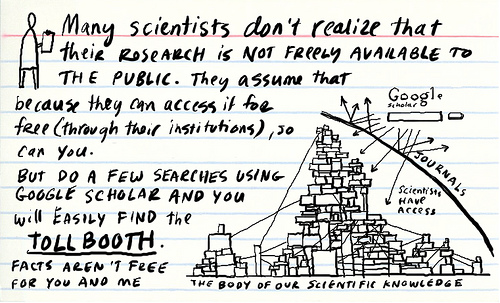 Many scientists don't realize that
their RESEARCH IS NOT FREELY AVAILABLE TO
THE PUBLIC. They assume that
because they can access it for
free (through their institutions), so
can you.
BUT DO A FEW SEARCHES USING
GOOGLE SCHOLAR AND YOU
will EASILY FIND the
TOLL BOOTH.
FACTS AREN'T FREE
FOR YOU AND ME
Google
scholar
JOURNALS
Scientists
HAVE
ACCESS
THE BODY OF OUR SCIENTIFIC KNOWLEDGE